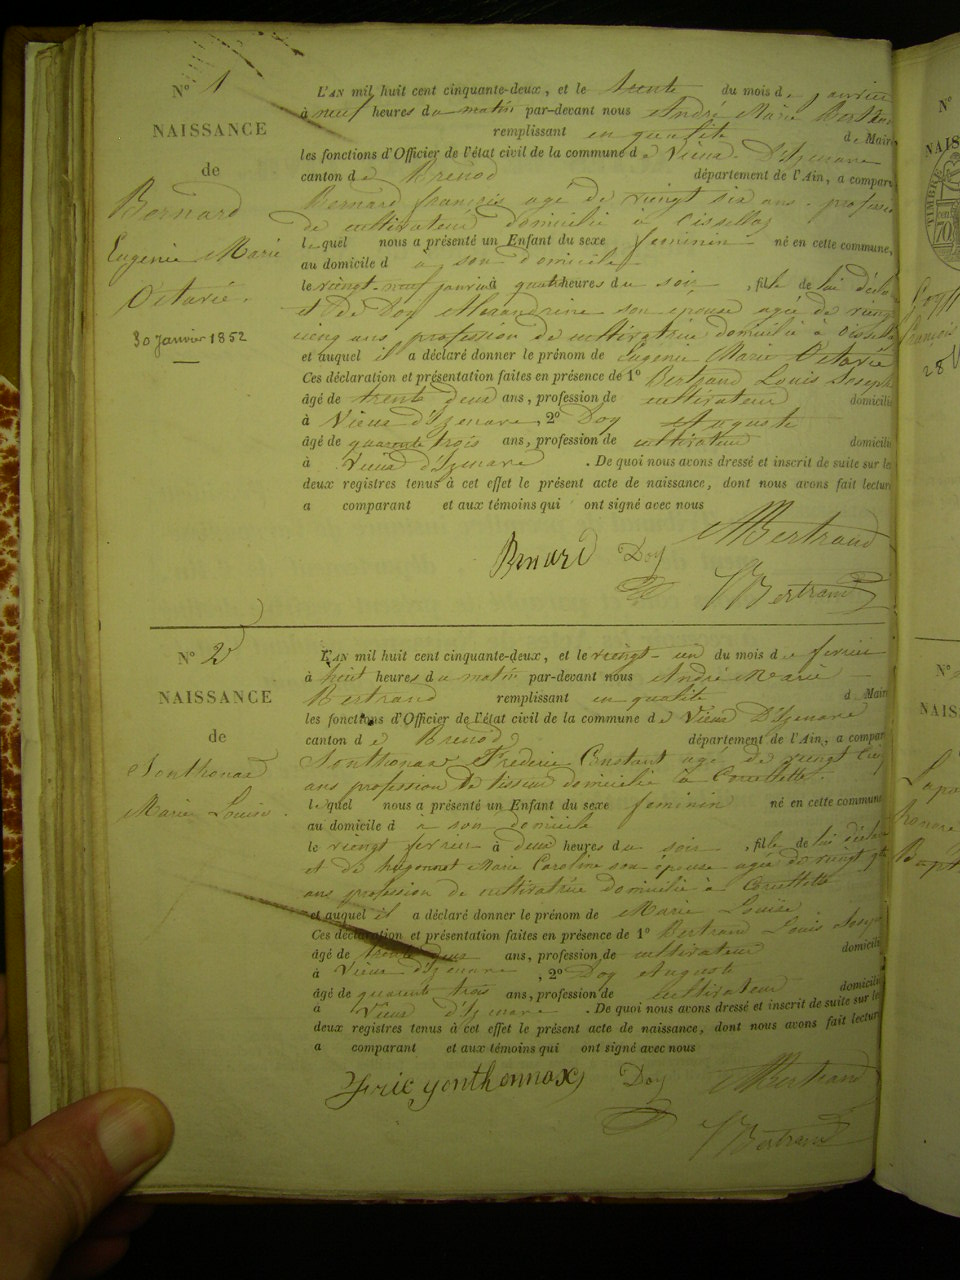 N° 1
NAISSANCE
de
Bernard
Eugenie Marie
Octavie.
30 janvier 1852
L'AN mil huit cent cinquante-deux, et le trente du mois de janvier
à neuf heures du matin par-devant nous André Marie Bertrand
remplissant en qualité de Maire
les fonctions d'Officier de l'état civil de la commune de Vieux D'Izenave
canton de Brenod département de l'Ain, a comparu
Bernard françois agé de vingt six ans. profession
de cultivateur domicilié à Oisellaz
lequel nous a présenté un Enfant du sexe feminin né en cette commune,
au domicile d à son domicile
le vingt-neuf janvier à quatre heures du soir, fille de lui déclarant
et de Doy Alexandrine son épouse agée de vingt
cinq ans profession de cultivatrice domicilié à Oisellaz
et auquel il a déclaré donner le prénom de Eugenie Marie Octavie
Ces déclaration et présentation faites en présence de 1° Bertrand Louis Joseph
âgé de trente deux ans, profession de cultivateur domicilié
à Vieux d'Izenave, 2° Doy Auguste
âgé de quarante trois ans, profession de cultivateur domicilié
à Vieux d'Izenave. De quoi nous avons dressé et inscrit de suite sur les
deux registres tenus à cet effet le présent acte de naissance, dont nous avons fait lecture
a comparant et aux témoins qui ont signé avec nous
Bernard Doy AMBertrand
Bertrand
N° 2
NAISSANCE
de
Sonthonax
Marie Louise.
L'AN mil huit cent cinquante-deux, et le vingt-un du mois de fevrier
à huit heures du matin par-devant nous André Marie
Bertrand remplissant en qualité d Maire
les fonctions d'Officier de l'état civil de la commune de Vieux D'Izenave
canton de Brenod département de l'Ain, a comparu
Sonthonax Frederic Constant agé de vingt
ans profession de tisseur domicilié à
lequel nous a présenté un Enfant du sexe feminin né en cette commune
au domicile d à son domicile
le vingt fevrier à deux heures du soir, fille de lui déclarant
et de hugonnet Marie Caroline son épouse agée de vingt
ans profession de cultivatrice domicilié à
et auquel il a déclaré donner le prénom de Marie Louise.
Ces déclaration et présentation faites en présence de 1° Bertrand Louis Joseph
âgé de trente deux ans, profession de cultivateur domicilié
à Vieux d'Izenave, 2° Doy Auguste
âgé de quarante trois ans, profession de cultivateur domicilié
à Vieux d'Izenave. De quoi nous avons dressé et inscrit de suite sur les
deux registres tenus à cet effet le présent acte de naissance, dont nous avons fait lecture
a comparant et aux témoins qui ont signé avec nous
Doy AMBertrand
Bertrand
N°
NAIS
TIMBRE
70
N°
NAIS